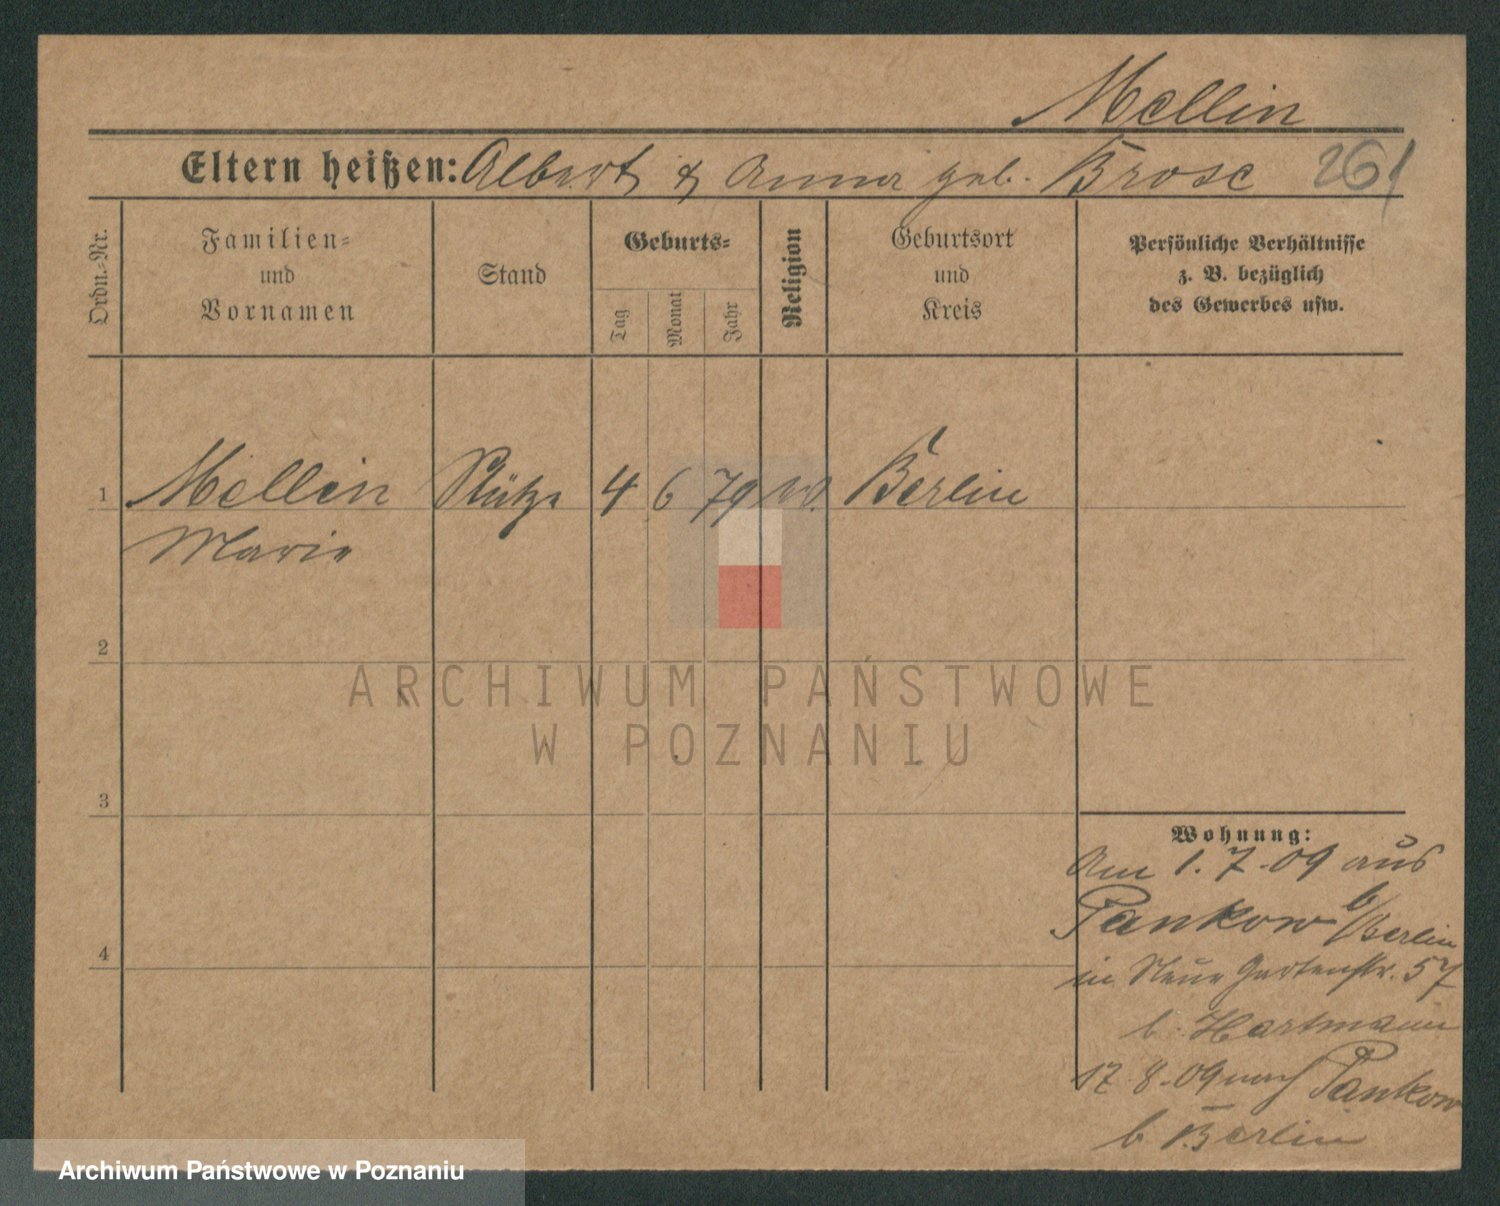 Mellin
Eltern heißen: Albert & Anna geb. Brose 261
Ordn.-Nr.
Familien-
und
Vornamen
Stand
Geburts-
Tag
Monat
Jahr
Religion
Geburtsort
und
Kreis
Persönliche Verhältnisse
z. B. bezüglich
des Gewerbes usw.
1 Mellin Stütze 4 6 79 Berlin
Marie
2
ARCHIWUM PAŃSTWOWE
W POZNANIU
3
Wohnung:
Am 1.7.09 aus
Pankow b/Berlin
in Neue Gartenstr. 57
b. Hartmann
4
17.8.09 nach Pankow
b Berlin
Archiwum Państwowe w Poznaniu